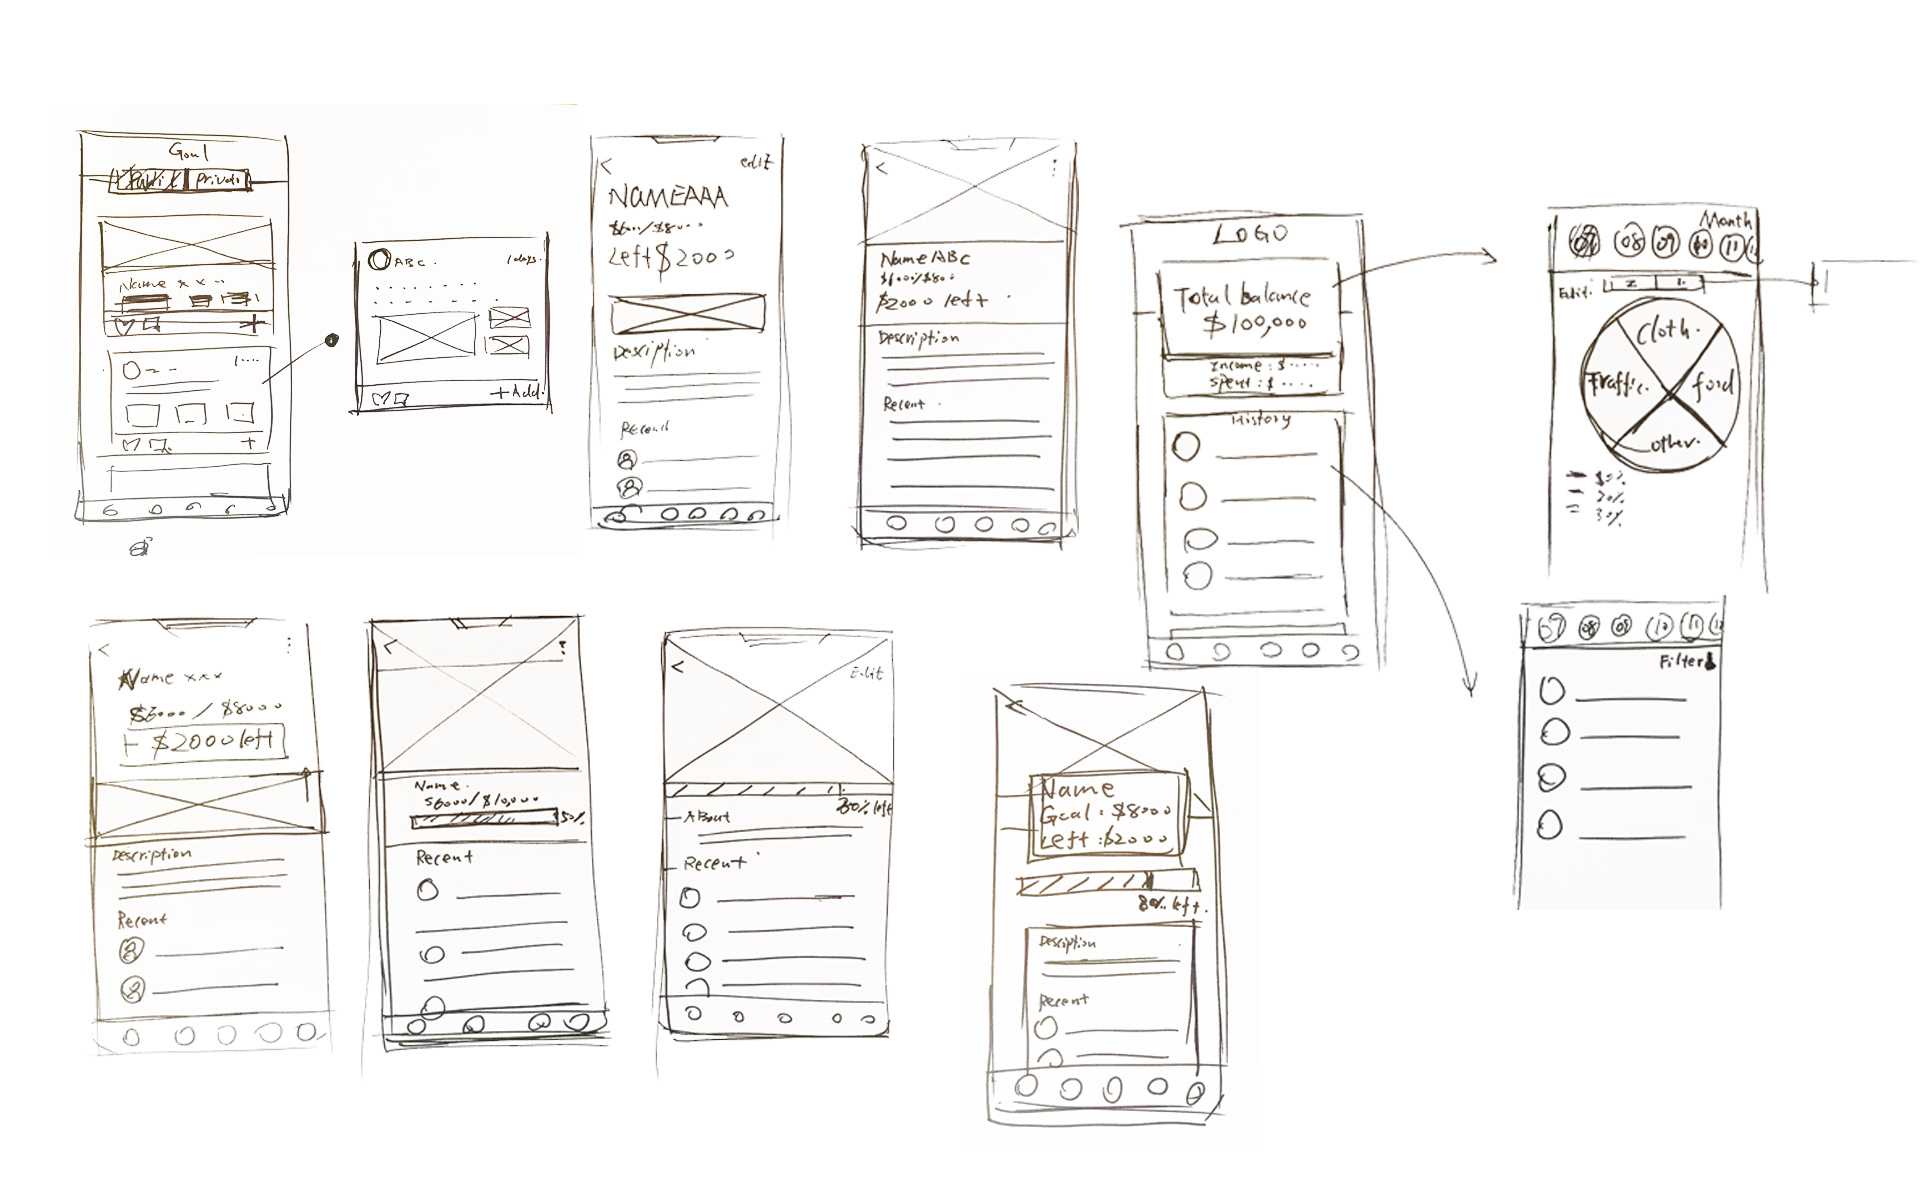 Goal
Public Private
Name x x
ABC. 1 days.
+ Add.
<
edit
NAMEAAA
$6000/$8000
Left $2000
Description
Recent
<
Name ABC
$2000 left
Description
Recent
LOGO
Total balance
$100,000
Income : $ ....
Spent : $ ....
History
Month
07 08 09 10 11
Edit.
Cloth.
Traffic. food
other.
20%
30%
07 08 09 10 11
Filter
<
Name xxx
$6000 / $8000
$2000 left
Description
Recent
<
Name.
$6000/$10,000
50%
Recent
<
Edit
30% left
About
Recent
<
Name
Goal : $8000
Left : $2000
80% left.
Description
Recent